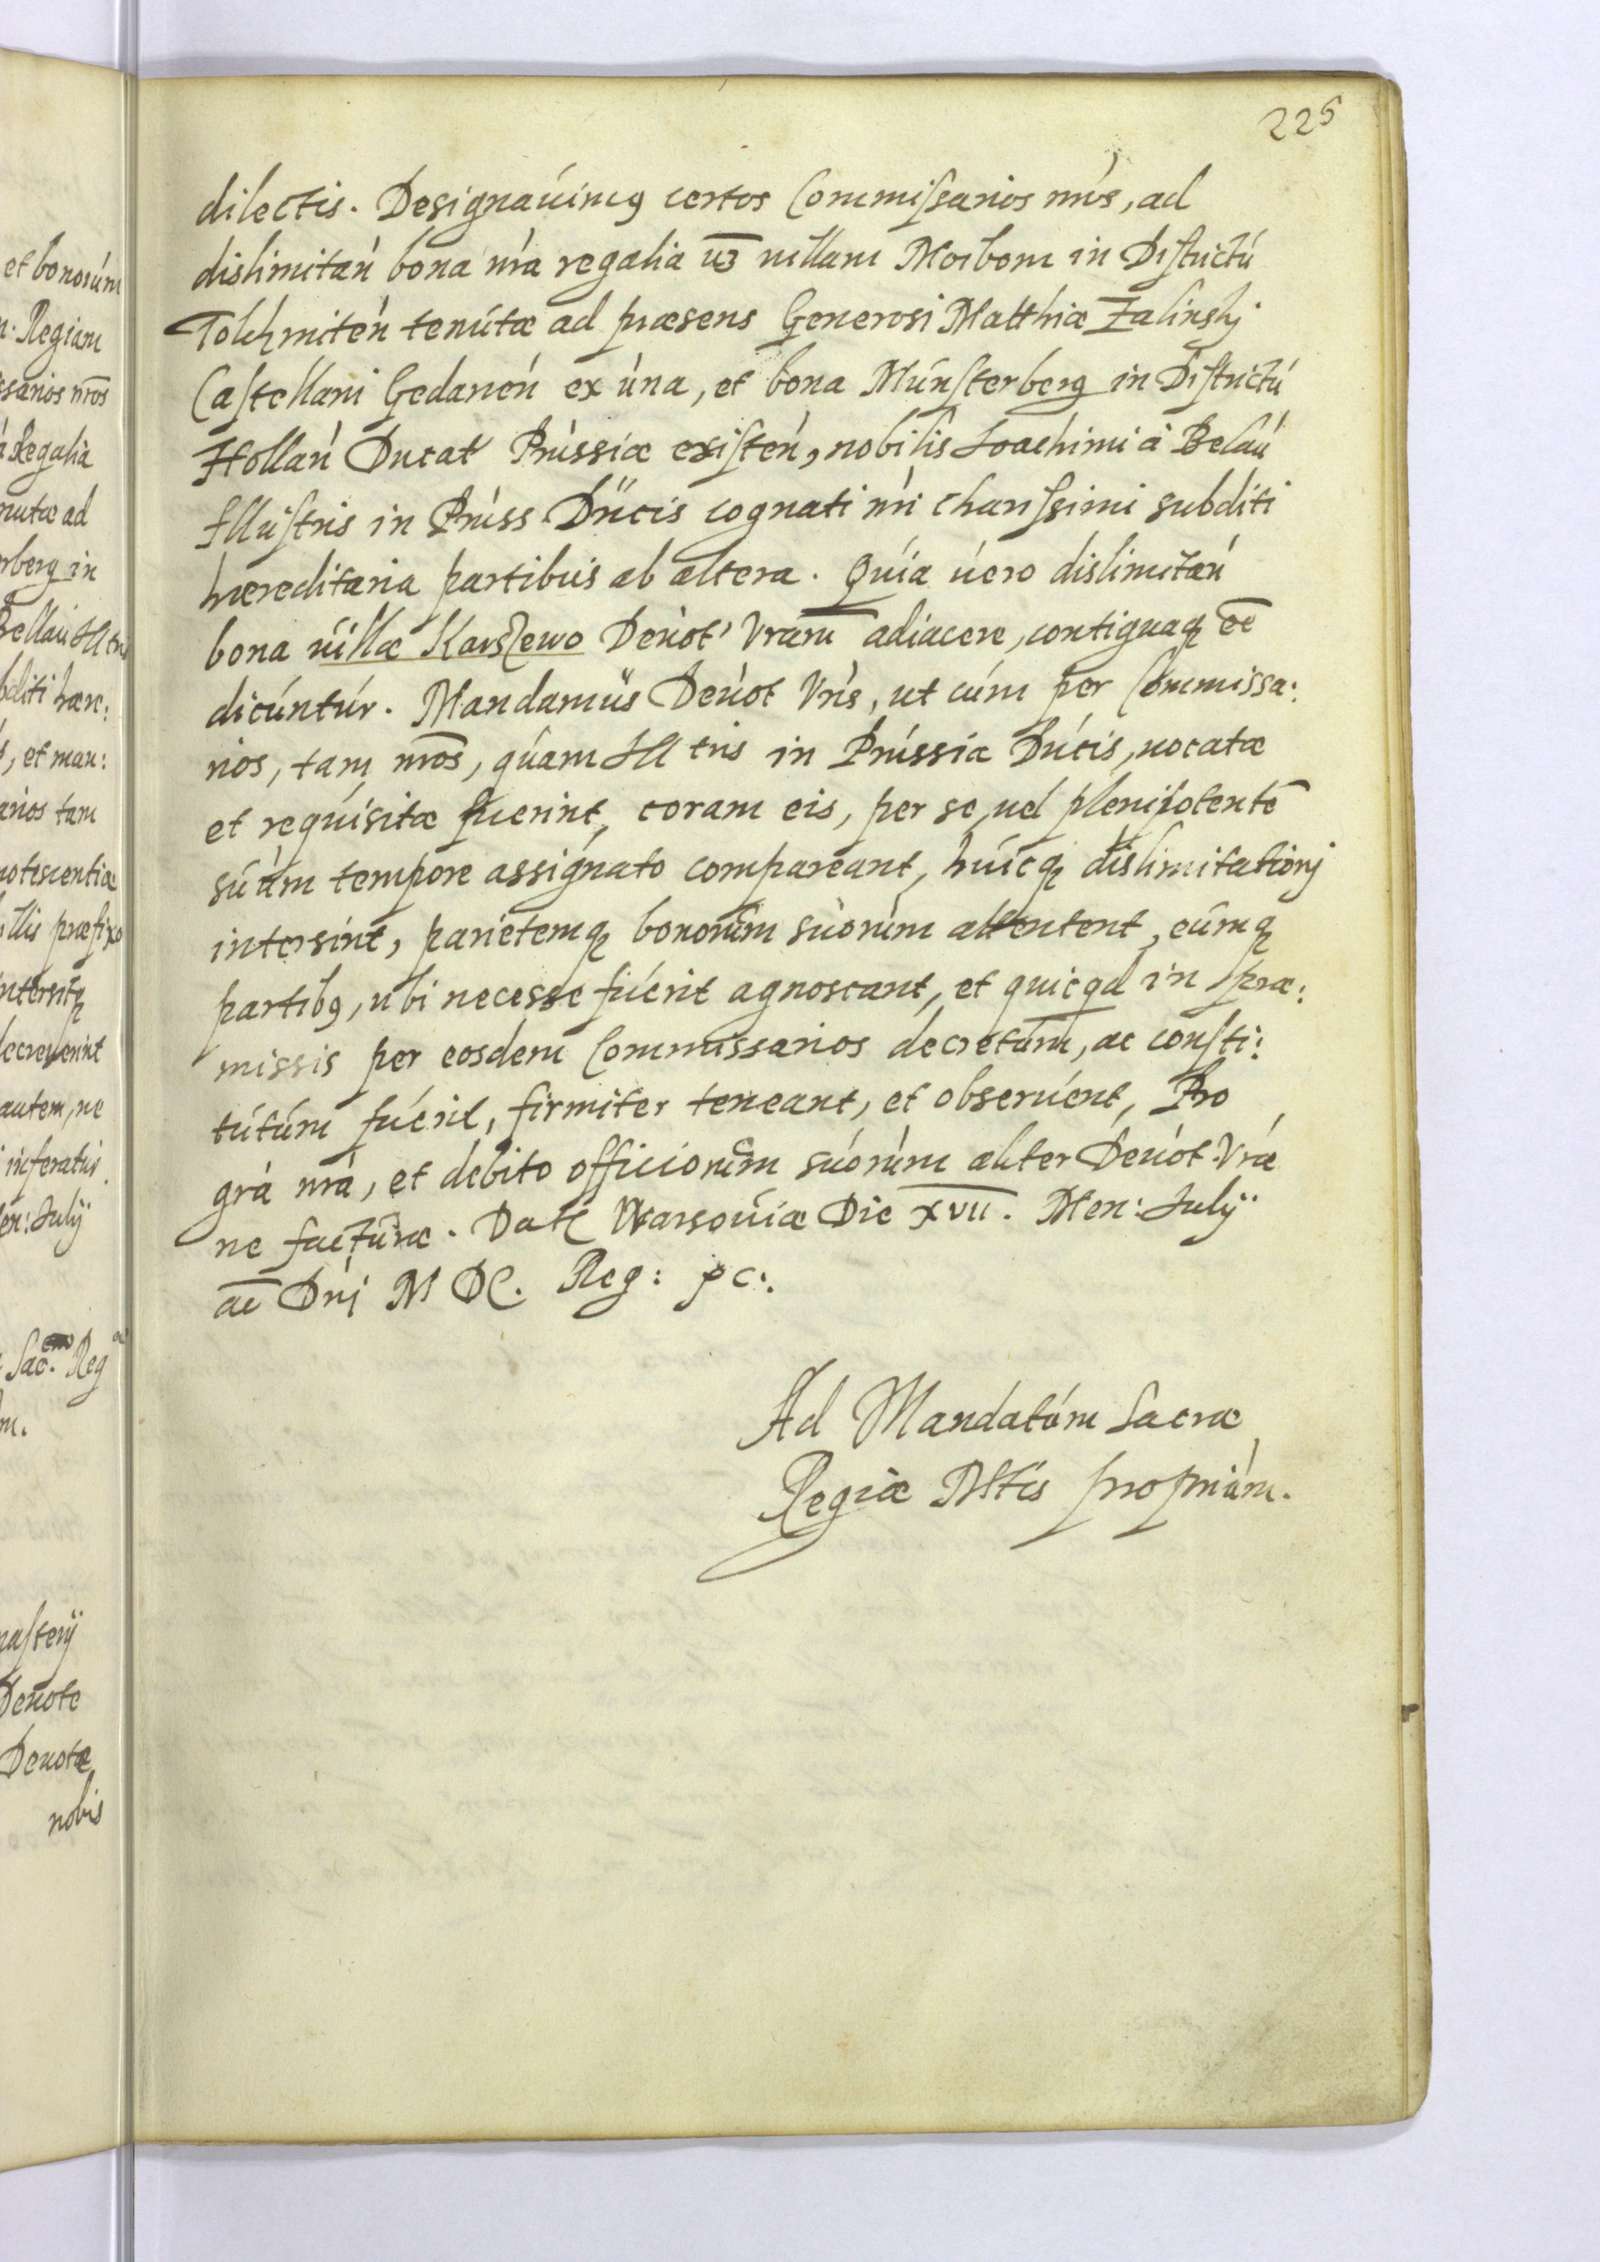 225
dilectis. Designauimꝰ certos Commissarios nr̄os, ad
dislimitan̄ bona nr̄a regalia uꝫ uillam Moibom in Districtu
Tolkmiten̄ tenutæ ad præsens Generosi Matthiæ Zalinskj
Castellani Gedanen̄ ex una, et bona Munsterberg in Districtu
Hollan̄ Ducat Prussiæ existen̄, nobilis Joachimi à Belau
Illustris in Pruss Ducis cognati nr̄i charissimi subditi
hæreditaria partibus ab altera. Quia uero dislimitan̄
bona uillæ Karszewo Deuot Vram̄ adiacere, contiguaqꝫ ee̅
dicuntur. Mandamus Deuot Vr̄is, ut cum per Commissa:
rios, tam nr̄os, quam Ill tris in Prussia Ducis, uocatæ
et requisitæ fuerint, coram eis, per se uel plenipotente̅
suum tempore assignato compareant, huicqꝫ dislimitationj
intersint, parietemqꝫ bonorum suorum attentent, eumqꝫ
partibꝰ, ubi necesse fuerit agnoscant, et quicqd in præ:
missis per eosdem Commissarios decretum, ac consti:
tutum fuerit, firmiter teneant, et obseruent, Pro
gr̄a nr̄a, et debito officiorum suorum aliter Deuot Vræ
ne facturæ. Dat Warsouiæ Die XVII. Men: Julij
ac̅ Dnj M DC. Reg: pc:.
Ad Mandatum Sacræ
Regiæ Mtis proprium.
et bonorum
Regiam
sarios nr̄os
Regalia
nutæ ad
rberg in
Bellau Ill tris
bditi hære:
, et man:
arios tam
notescentiæ
illis præfixo
intersitqꝫ
decreuerint
autem, ne
inferatis.
en: Julij
Sac. Reg
m.
nasterij
Deuote
Deuotæ
nobis